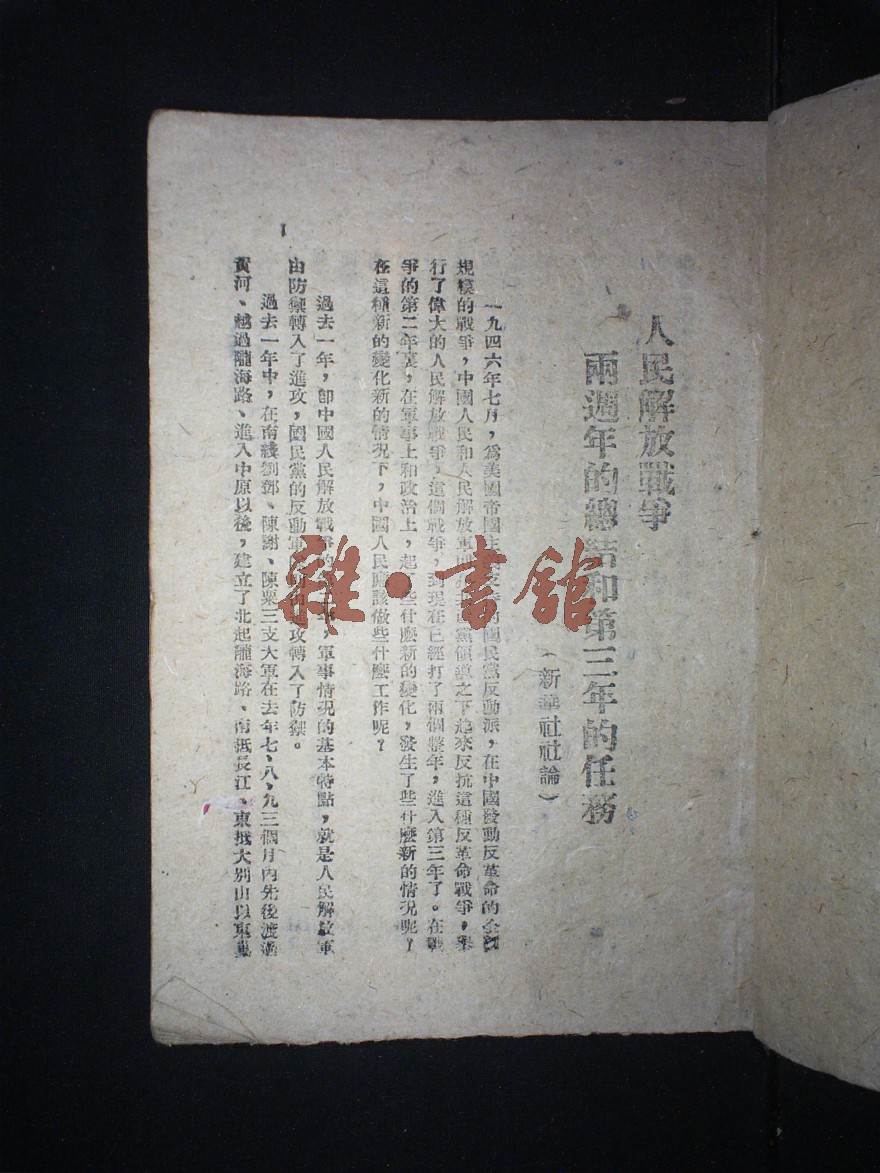 人民解放戰爭
兩週年的總結和第三年的任務
(新華社社論)
一九四六年七月，爲美國帝國主 反 的國民黨反動派，在中國發動反革命的全面
規模的戰爭，中國人民和人民解放軍 黨領導之下起來反抗這種反革命戰爭，舉
行了偉大的人民解放戰爭。這個戰爭，到現在已經打了兩個整年，進入第三年了。在戰
爭的第二年裏，在軍事上和政治上，起 些什麼新的變化，發生了些什麼新的情況呢？
在這種新的變化新的情況下，中國人民應該做些什麼工作呢？
過去一年，卽中國人民解放戰爭的 ，軍事情況的基本特點，就是人民解放軍
由防禦轉入了進攻，國民黨的反動軍 進攻轉入了防禦。
過去一年中，在南綫劉鄧、陳謝、陳粟三支大軍在去年七、八，九三個月內先後渡過
黃河、越過隴海路、進入中原以後，建立了北起隴海路、南抵長江、東抵大別山以東
1
雜·書館